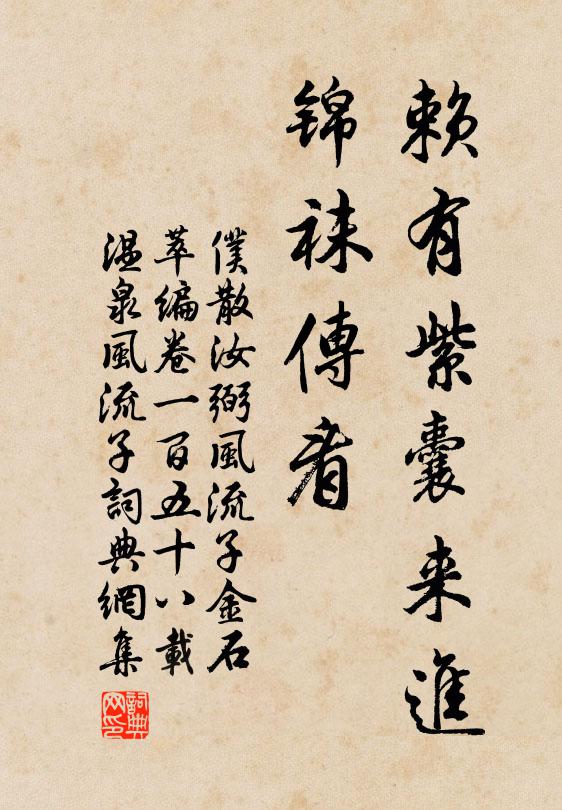 賴有紫囊来進
锦袜傳看
僕散汝弼風流子金石
萃编卷一百五十八載
温泉風流子詞典網集
詞典
网印